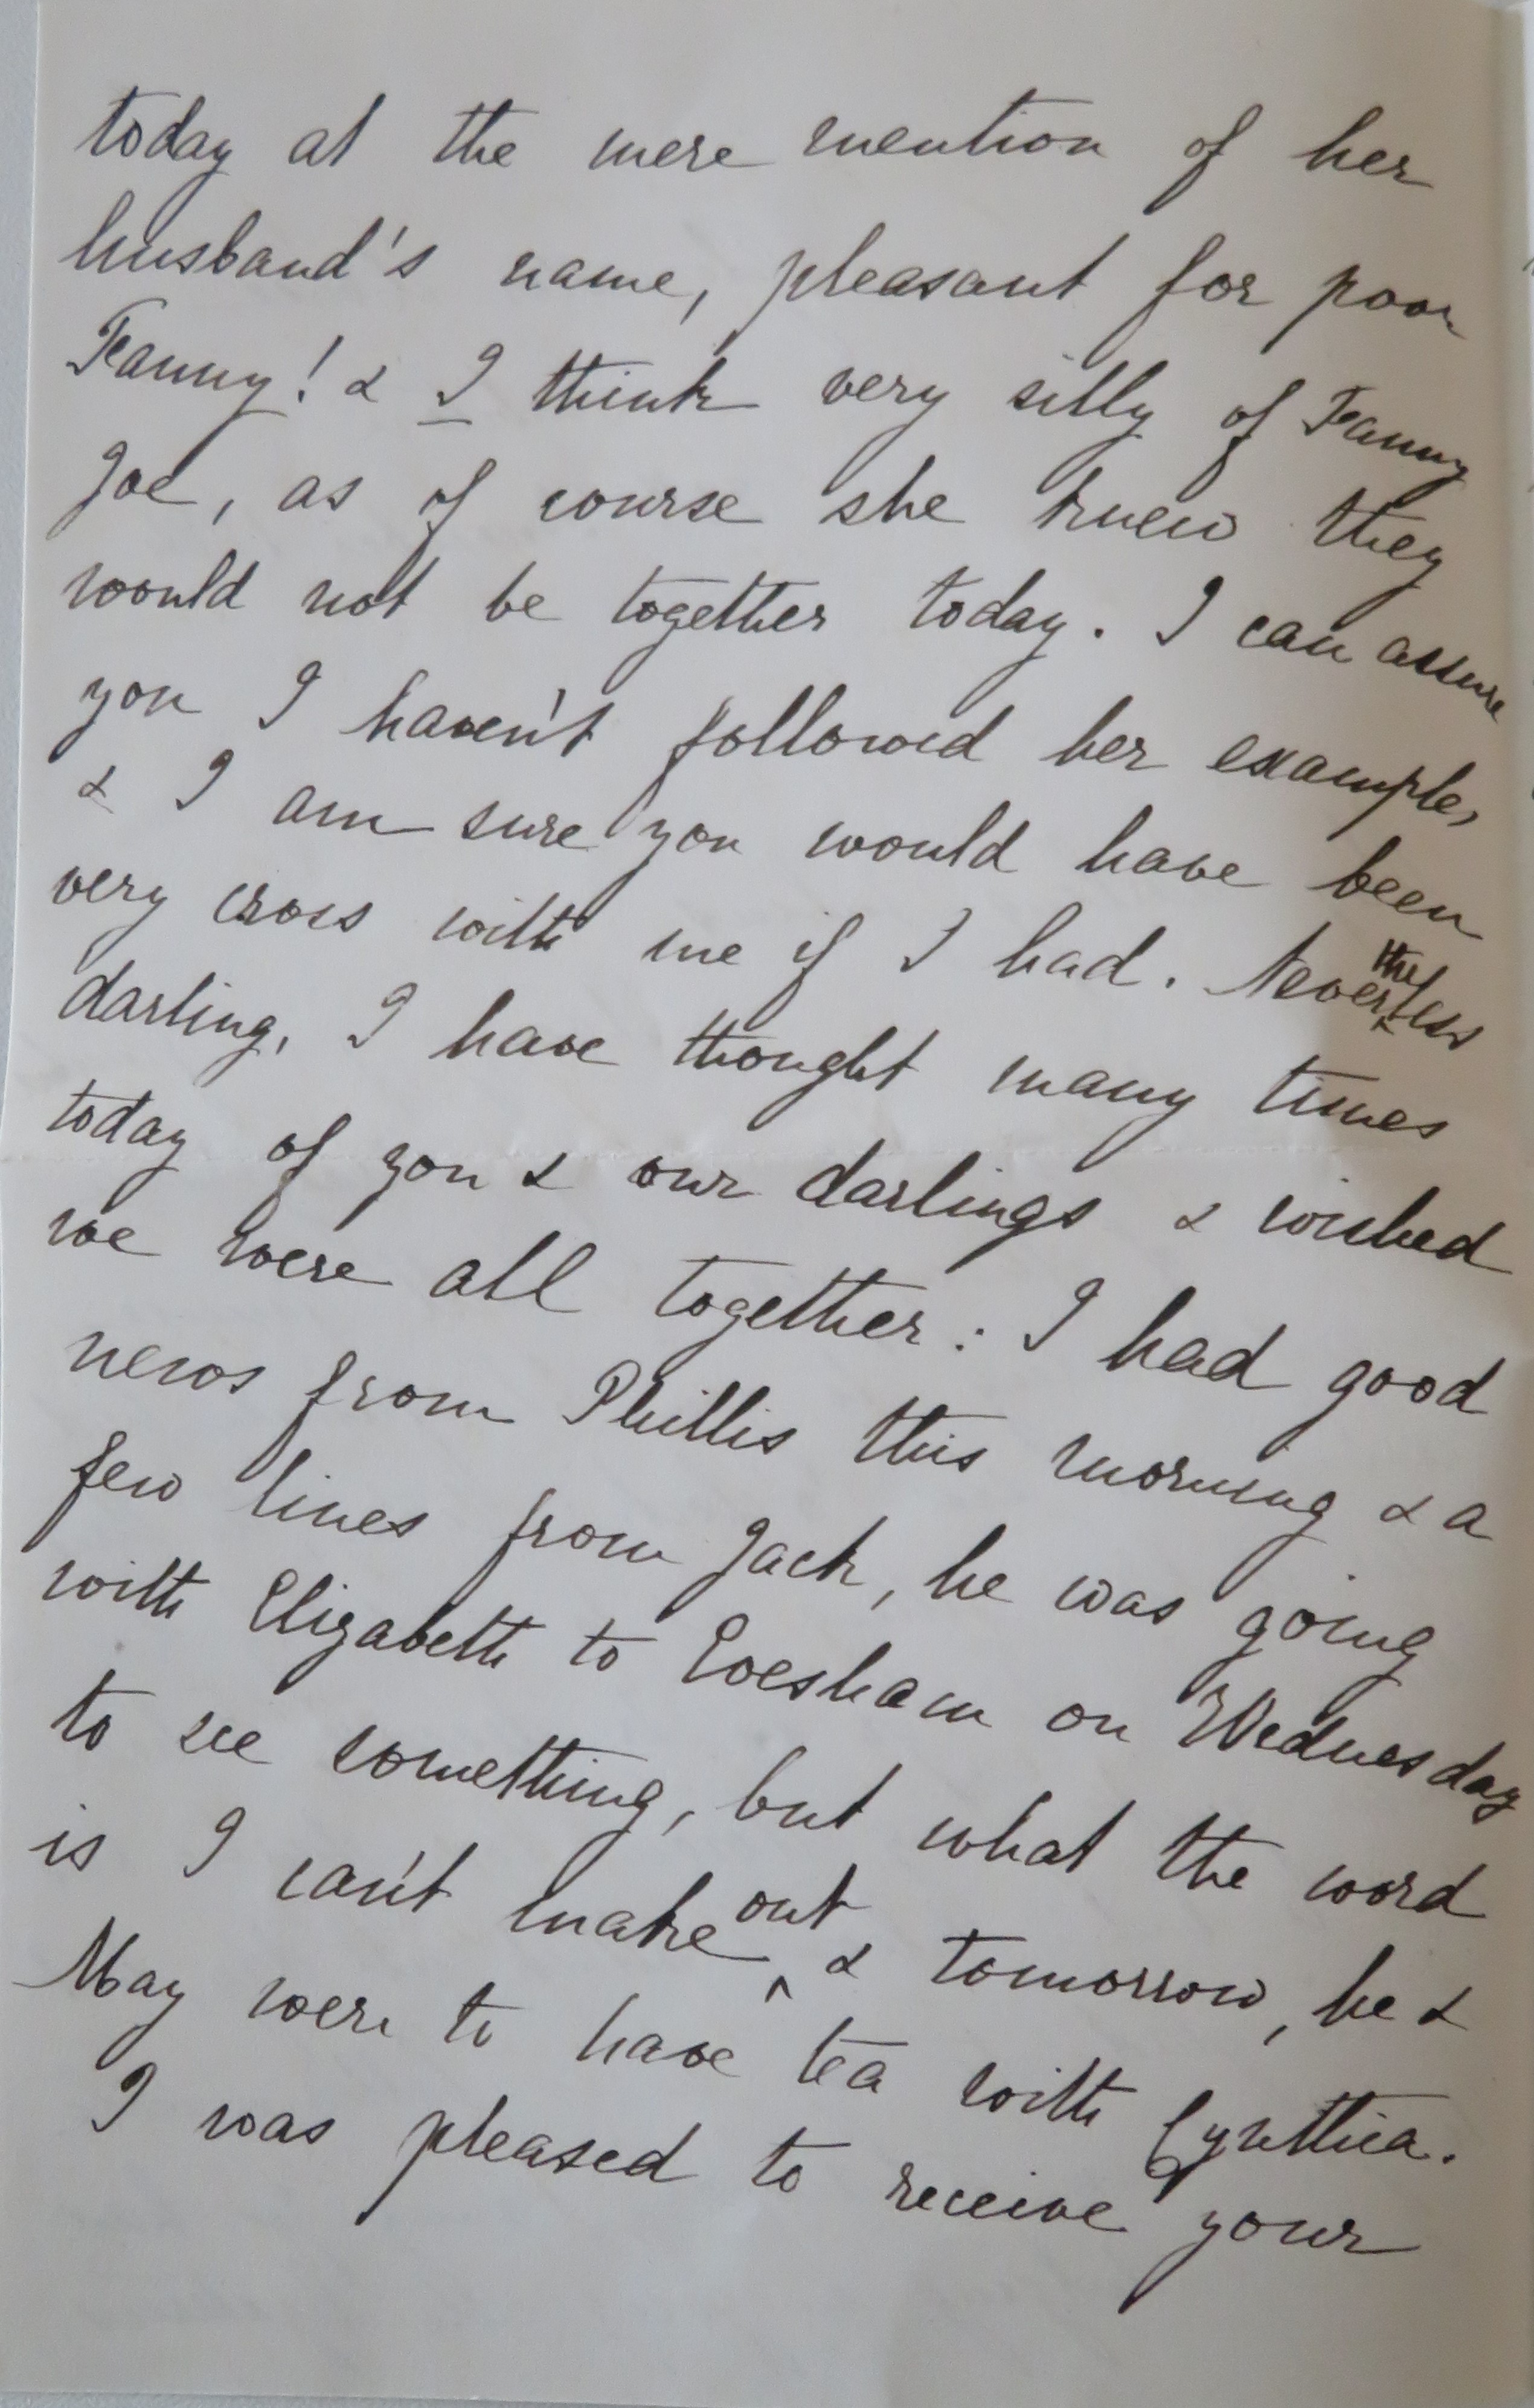 today at the mere mention of her
husband's name, pleasant for poor
Fanny! & I think very silly of Fanny
Joe, as of course she knew they
would not be together today. I can assure
you I haven't followed her example,
& I am sure you would have been
very cross with me if I had. Nevertheless
darling, I have thought many times
today of you & our darlings & wished
we were all together: I had good
news from Phillis this morning & a
few lines from Jack, he was going
with Elizabeth to Evesham on Wednesday
to see something, but what the word
is I can't make out & tomorrow, he &
May were to have tea with Cynthia.
I was pleased to receive your